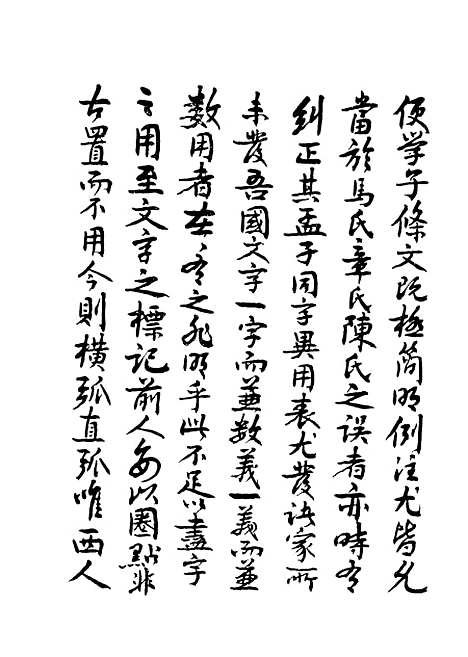 便学子條文既極簡明例注尤皆允
當於馬氏章氏陳氏之誤者亦時有
糾正其孟子同字異用表尤發諸家所
未發吾國文字一字而兼數義一義而兼
數用者在在有之非明乎此不足以盡字
之用至文字之標記前人每以圈點非
古置而不用今則橫弧直弧唯西人